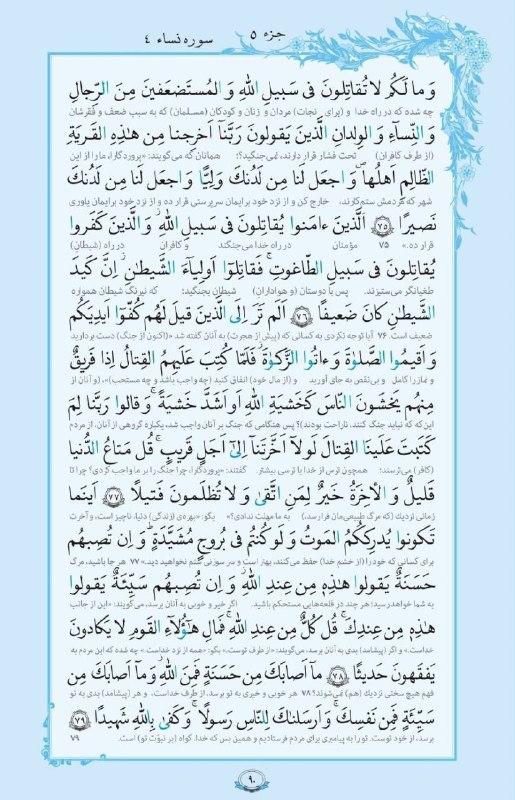 جزء ۵
سوره نساء ۴
وَ ما لَكُم لا تُقاتِلونَ فی سَبیلِ اللهِ وَ المُستَضعَفینَ مِنَ الرِّجالِ
چه شده که در راه خدا و (برای نجات) مردان و زنان و کودکان (مسلمان) که به سبب ضعف و فقرشان
وَ النِّساءِ وَ الوِلدانِ الَّذینَ یَقولونَ رَبَّنا اَخرِجنا مِن هٰذِهِ القَریَةِ
(از طرف کافران) تحت فشار قرار دارند، نمی‌جنگید؟! همانان که می‌گویند: «پروردگارا، ما را از این
الظّالِمِ اَهلُها وَ اجعَل لَنا مِن لَدُنكَ وَلِیًّا وَ اجعَل لَنا مِن لَدُنكَ
شهر که مردمش ستم‌کارند، خارج کن و از نزد خود برایمان سرپرستی قرار ده و از نزد خود برایمان یاوری
نَصیرًا ﴿۷۵﴾ اَلَّذینَ ءامَنوا یُقاتِلونَ فی سَبیلِ اللهِ وَ الَّذینَ كَفَروا
قرار ده.» ۷۵ مؤمنان در راه خدا می‌جنگند و کافران در راه (شیطانِ)
یُقاتِلونَ فی سَبیلِ الطّاغوتِ فَقاتِلوا اَولِیاءَ الشَّیطٰنِ اِنَّ كَیدَ
طغیانگر می‌ستیزند. پس با دوستان (و هواداران) شیطان بجنگید؛ که نیرنگ شیطان همواره
الشَّیطٰنِ كانَ ضَعیفًا ﴿۷۶﴾ اَلَم تَرَ اِلَی الَّذینَ قیلَ لَهُم كُفّوا اَیدِیَكُم
ضعیف است. ۷۶ آیا توجه نکردی به کسانی که (پیش از هجرت) به آنان گفته شد «(اکنون از جنگ) دست بردارید
وَ اَقیمُوا الصَّلوٰةَ وَ ءاتُوا الزَّكوٰةَ فَلَمّا كُتِبَ عَلَیهِمُ القِتالُ اِذا فَریقٌ
و نماز را کامل و بی‌نقص به جای آورید و (از مال خود) انفاق کنید (چه واجب باشد و چه مستحب)»، (و آنان از
مِنهُم یَخشَونَ النّاسَ كَخَشیَةِ اللهِ اَو اَشَدَّ خَشیَةً وَ قالوا رَبَّنا لِمَ
این که که نباید جنگ کنند، ناراحت بودند)؟ پس هنگامی که جنگ بر آنان واجب شد، یکباره گروهی از آنان، از مردم
كَتَبتَ عَلَینَا القِتالَ لَولا اَخَّرتَنا اِلیٰ اَجَلٍ قَریبٍ قُل مَتاعُ الدُّنیا
(کافر) می‌ترسند؛ همچون ترس از خدا یا ترسی بیشتر. گفتند: «پروردگارا، چرا جنگ را بر ما واجب کردی؟ چرا تا
قَلیلٌ وَ الأخِرَةُ خَیرٌ لِمَنِ اتَّقیٰ وَ لا تُظلَمونَ فَتیلًا ﴿۷۷﴾ اَینَما
زمانی نزدیك (که مرگ طبیعی‌مان فرا رسد)، به ما مهلت ندادی؟» بگو: «بهره‌ی (زندگی) دنیا، ناچیز است، و آخرت
تَكونوا یُدرِككُمُ المَوتُ وَ لَو كُنتُم فی بُروجٍ مُشَیَّدَةٍ وَ اِن تُصِبهُم
برای کسانی که خود را (از خشم خدا) حفظ می‌کنند، بهتر است و سر سوزنی ستم نخواهید دید.» ۷۷ هر جا باشید، مرگ
حَسَنَةٌ یَقولوا هٰذِهِ مِن عِندِ اللهِ وَ اِن تُصِبهُم سَیِّئَةٌ یَقولوا
به شما خواهد رسید؛ هر چند در قلعه‌هایی مستحکم باشید. اگر خیر و خوبی به آنان برسد، می‌گویند: «این از جانب
هٰذِهِ مِن عِندِكَ قُل كُلٌّ مِن عِندِ اللهِ فَمالِ هٰؤُلاءِ القَومِ لا یَكادونَ
خداست.» و اگر (پیشامد) بدی به آنان برسد، می‌گویند: «از طرف توست.» بگو: «همه از نزد خداست.» چه شده که این مردم به
یَفقَهونَ حَدیثًا ﴿۷۸﴾ ما اَصابَكَ مِن حَسَنَةٍ فَمِنَ اللهِ وَ ما اَصابَكَ مِن
فهم هیچ سخنی نزدیك (هم) نمی‌شوند؟ ۷۸ هر خوبی و خیری به تو برسد، از طرف خداست، و هر (پیشامد) بدی به تو
سَیِّئَةٍ فَمِن نَفسِكَ وَ اَرسَلناكَ لِلنّاسِ رَسولًا وَ كَفیٰ بِاللهِ شَهیدًا ﴿۷۹﴾
برسد، از خود توست. تو را به پیامبری برای مردم فرستادیم و همین بس که خدا، گواه (بر نبوّت تو) است. ۷۹
۹۰